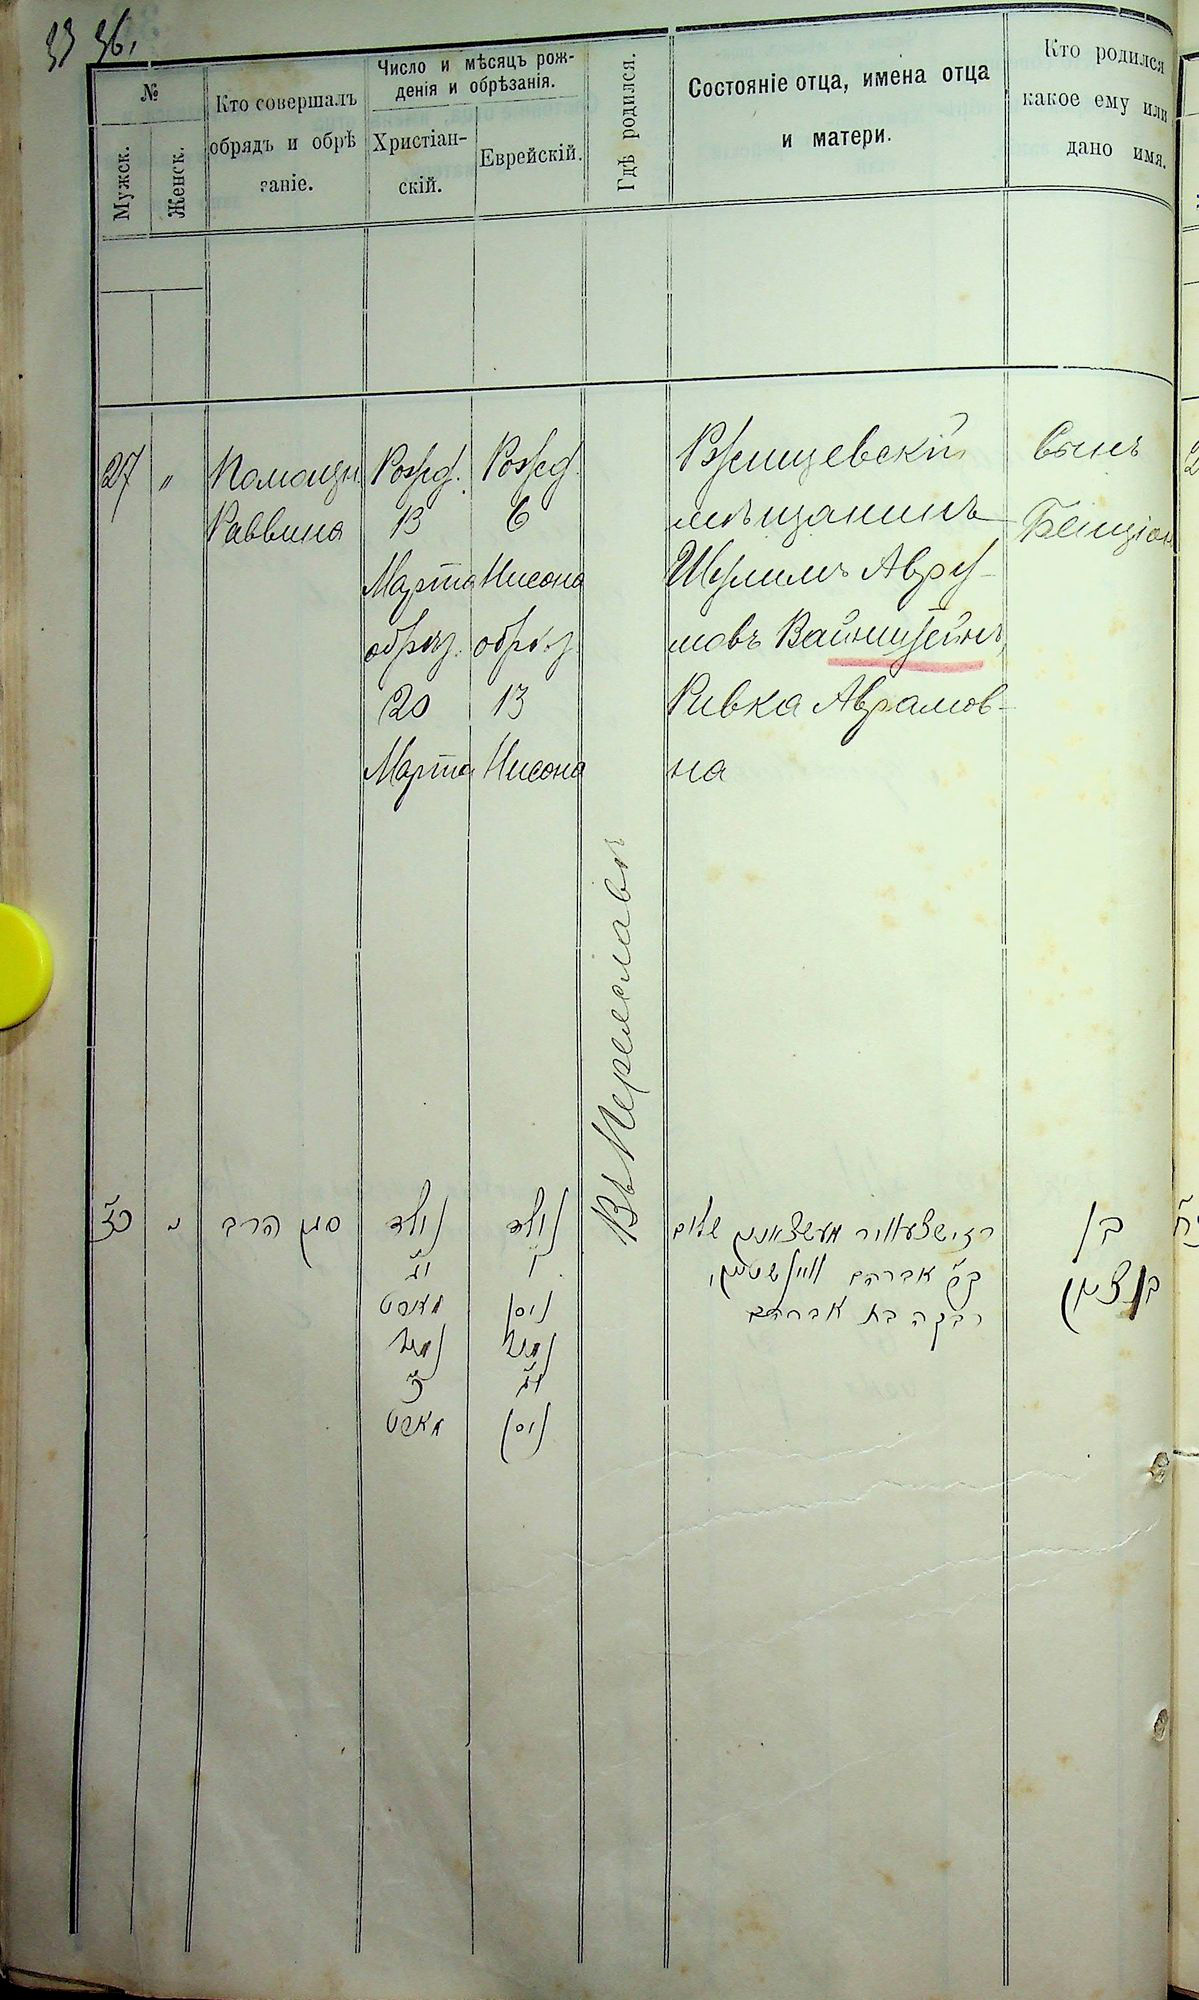 33 36,
№
Мужск.
Женск.
Кто совершалъ
обрядъ и обрѣ
заніе.
Число и мѣсяцъ рож-
денія и обрѣзанія.
Христіан-
скій.
Еврейскій.
Гдѣ родился.
Состояніе отца, имена отца
и матери.
Кто родился
какое ему или
дано имя.
27
"
Помощн.
Раввина
Рожд.
13
Марта
обрѣз.
20
Марта
Рожд.
6
Нисона
обрѣз.
13
Нисона
Въ Переяславѣ
Ржищевскій
мѣщанинъ
Шулимъ Авру-
мовъ Вайнштейнъ,
Ривка Аврамов-
на
Сынъ
Бенціон
כז
"
סגן הרב
נולד
יג
מארט
נמול
כ
מארט
נולד
ו
ניסן
נמול
יג
ניסן
מעשצאנין שלום
אברהם וויינשטיין,
רבקה בת אברהם
בן
בן ציון